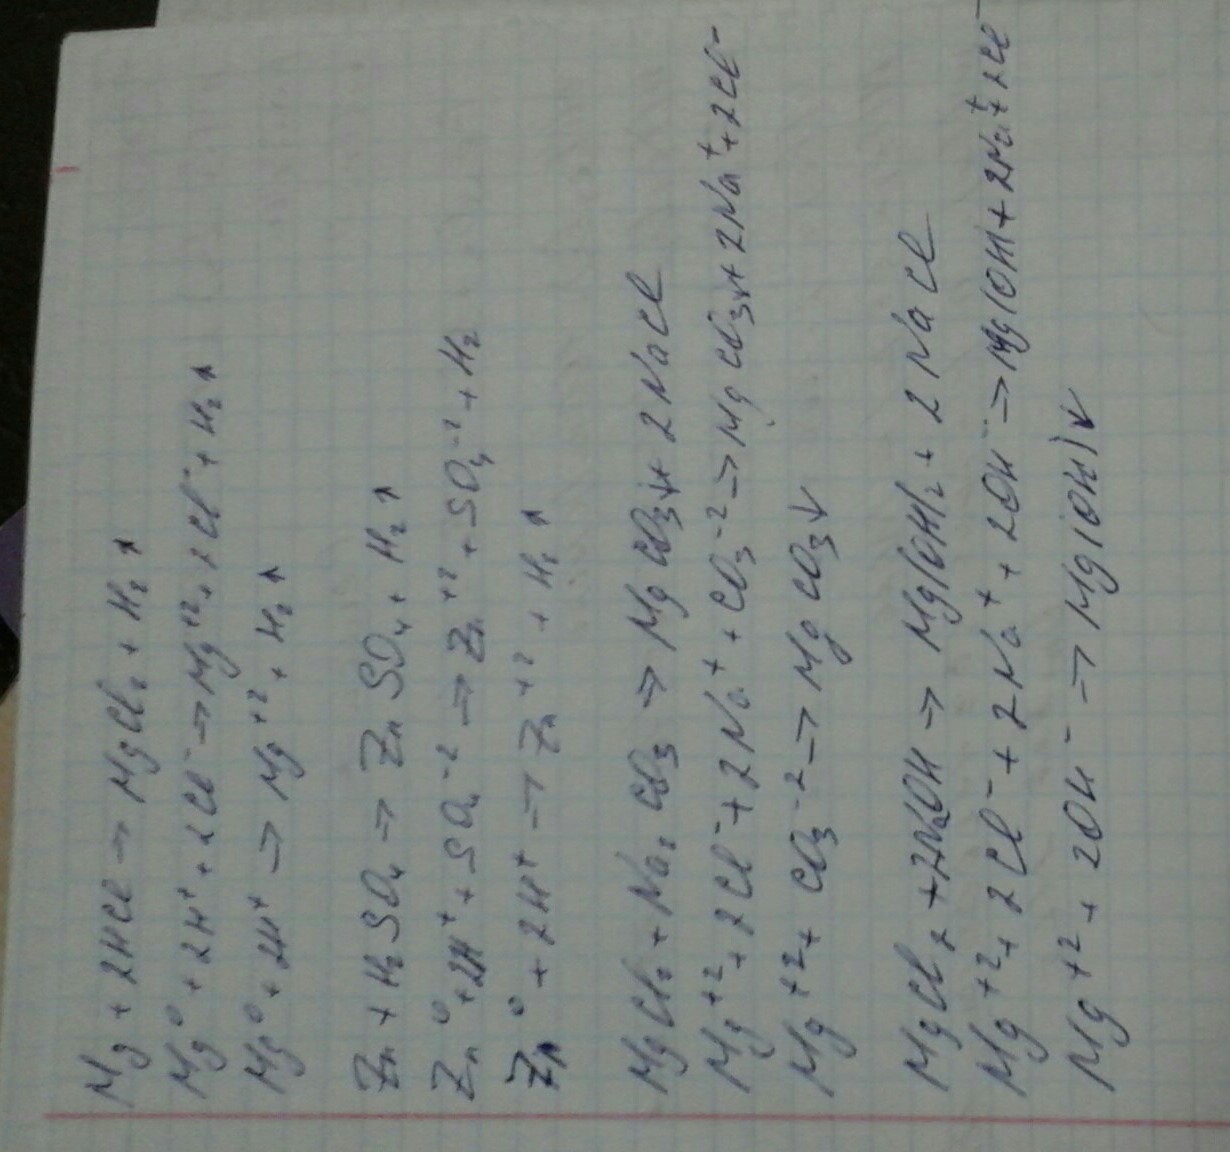 Mg + 2HCl → MgCl₂ + H₂↑
Mg⁰ + 2H⁺ + 2Cl⁻ → Mg⁺² + 2Cl⁻ + H₂↑
Mg⁰ + 2H⁺ → Mg⁺² + H₂↑
Zn + H₂SO₄ → ZnSO₄ + H₂↑
Zn⁰ + 2H⁺ + SO₄⁻² → Zn⁺² + SO₄⁻² + H₂
Zn⁰ + 2H⁺ → Zn⁺² + H₂↑
MgCl₂ + Na₂CO₃ → MgCO₃↓ + 2NaCl
Mg⁺² + 2Cl⁻ + 2Na⁺ + CO₃⁻² → MgCO₃↓ + 2Na⁺ + 2Cl⁻
Mg⁺² + CO₃⁻² → MgCO₃↓
MgCl₂ + 2NaOH → Mg(OH)₂ + 2NaCl
Mg⁺² + 2Cl⁻ + 2Na⁺ + 2OH⁻ → Mg(OH) + 2Na⁺ + 2Cl⁻
Mg⁺² + 2OH⁻ → Mg(OH)↓